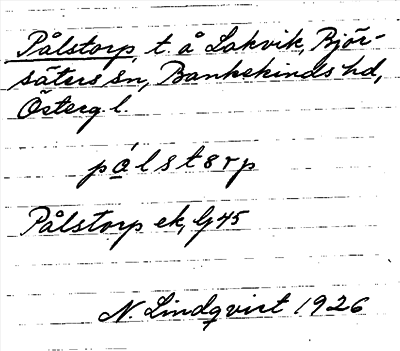 Pålstorp, t. å Lakvik, Björ-
säters sn, Bankekinds hd,
Österg. l.
pålstɵrp
Pålstorp ek, G 45
N. Lindqvist 1926